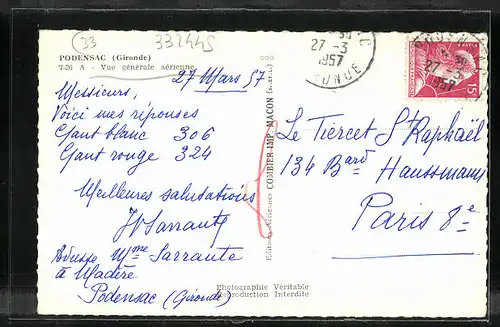 33
332445
PODENSAC (Gironde)
7-26 A - Vue générale aérienne
27 Mars 57
Messieurs,
Voici mes réponses
Gant blanc 306
Gant rouge 324
Meilleures salutations
Adresse Mme Sarrante
à Madère
Podensac (Gironde)
Photographie Véritable
Reproduction Interdite
Editions Aériennes COMBIER IMP. MACON
27-3
1957
GIRONDE
PODENSAC
27-3
1957
15F
Le Tiercet St Raphaël
134 Bard Haussmann
Paris 8e